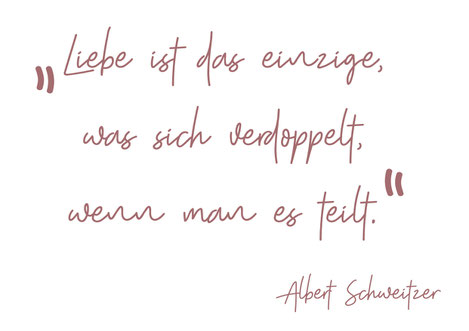 "Liebe ist das einzige,
was sich verdoppelt,
wenn man es teilt."
Albert Schweitzer